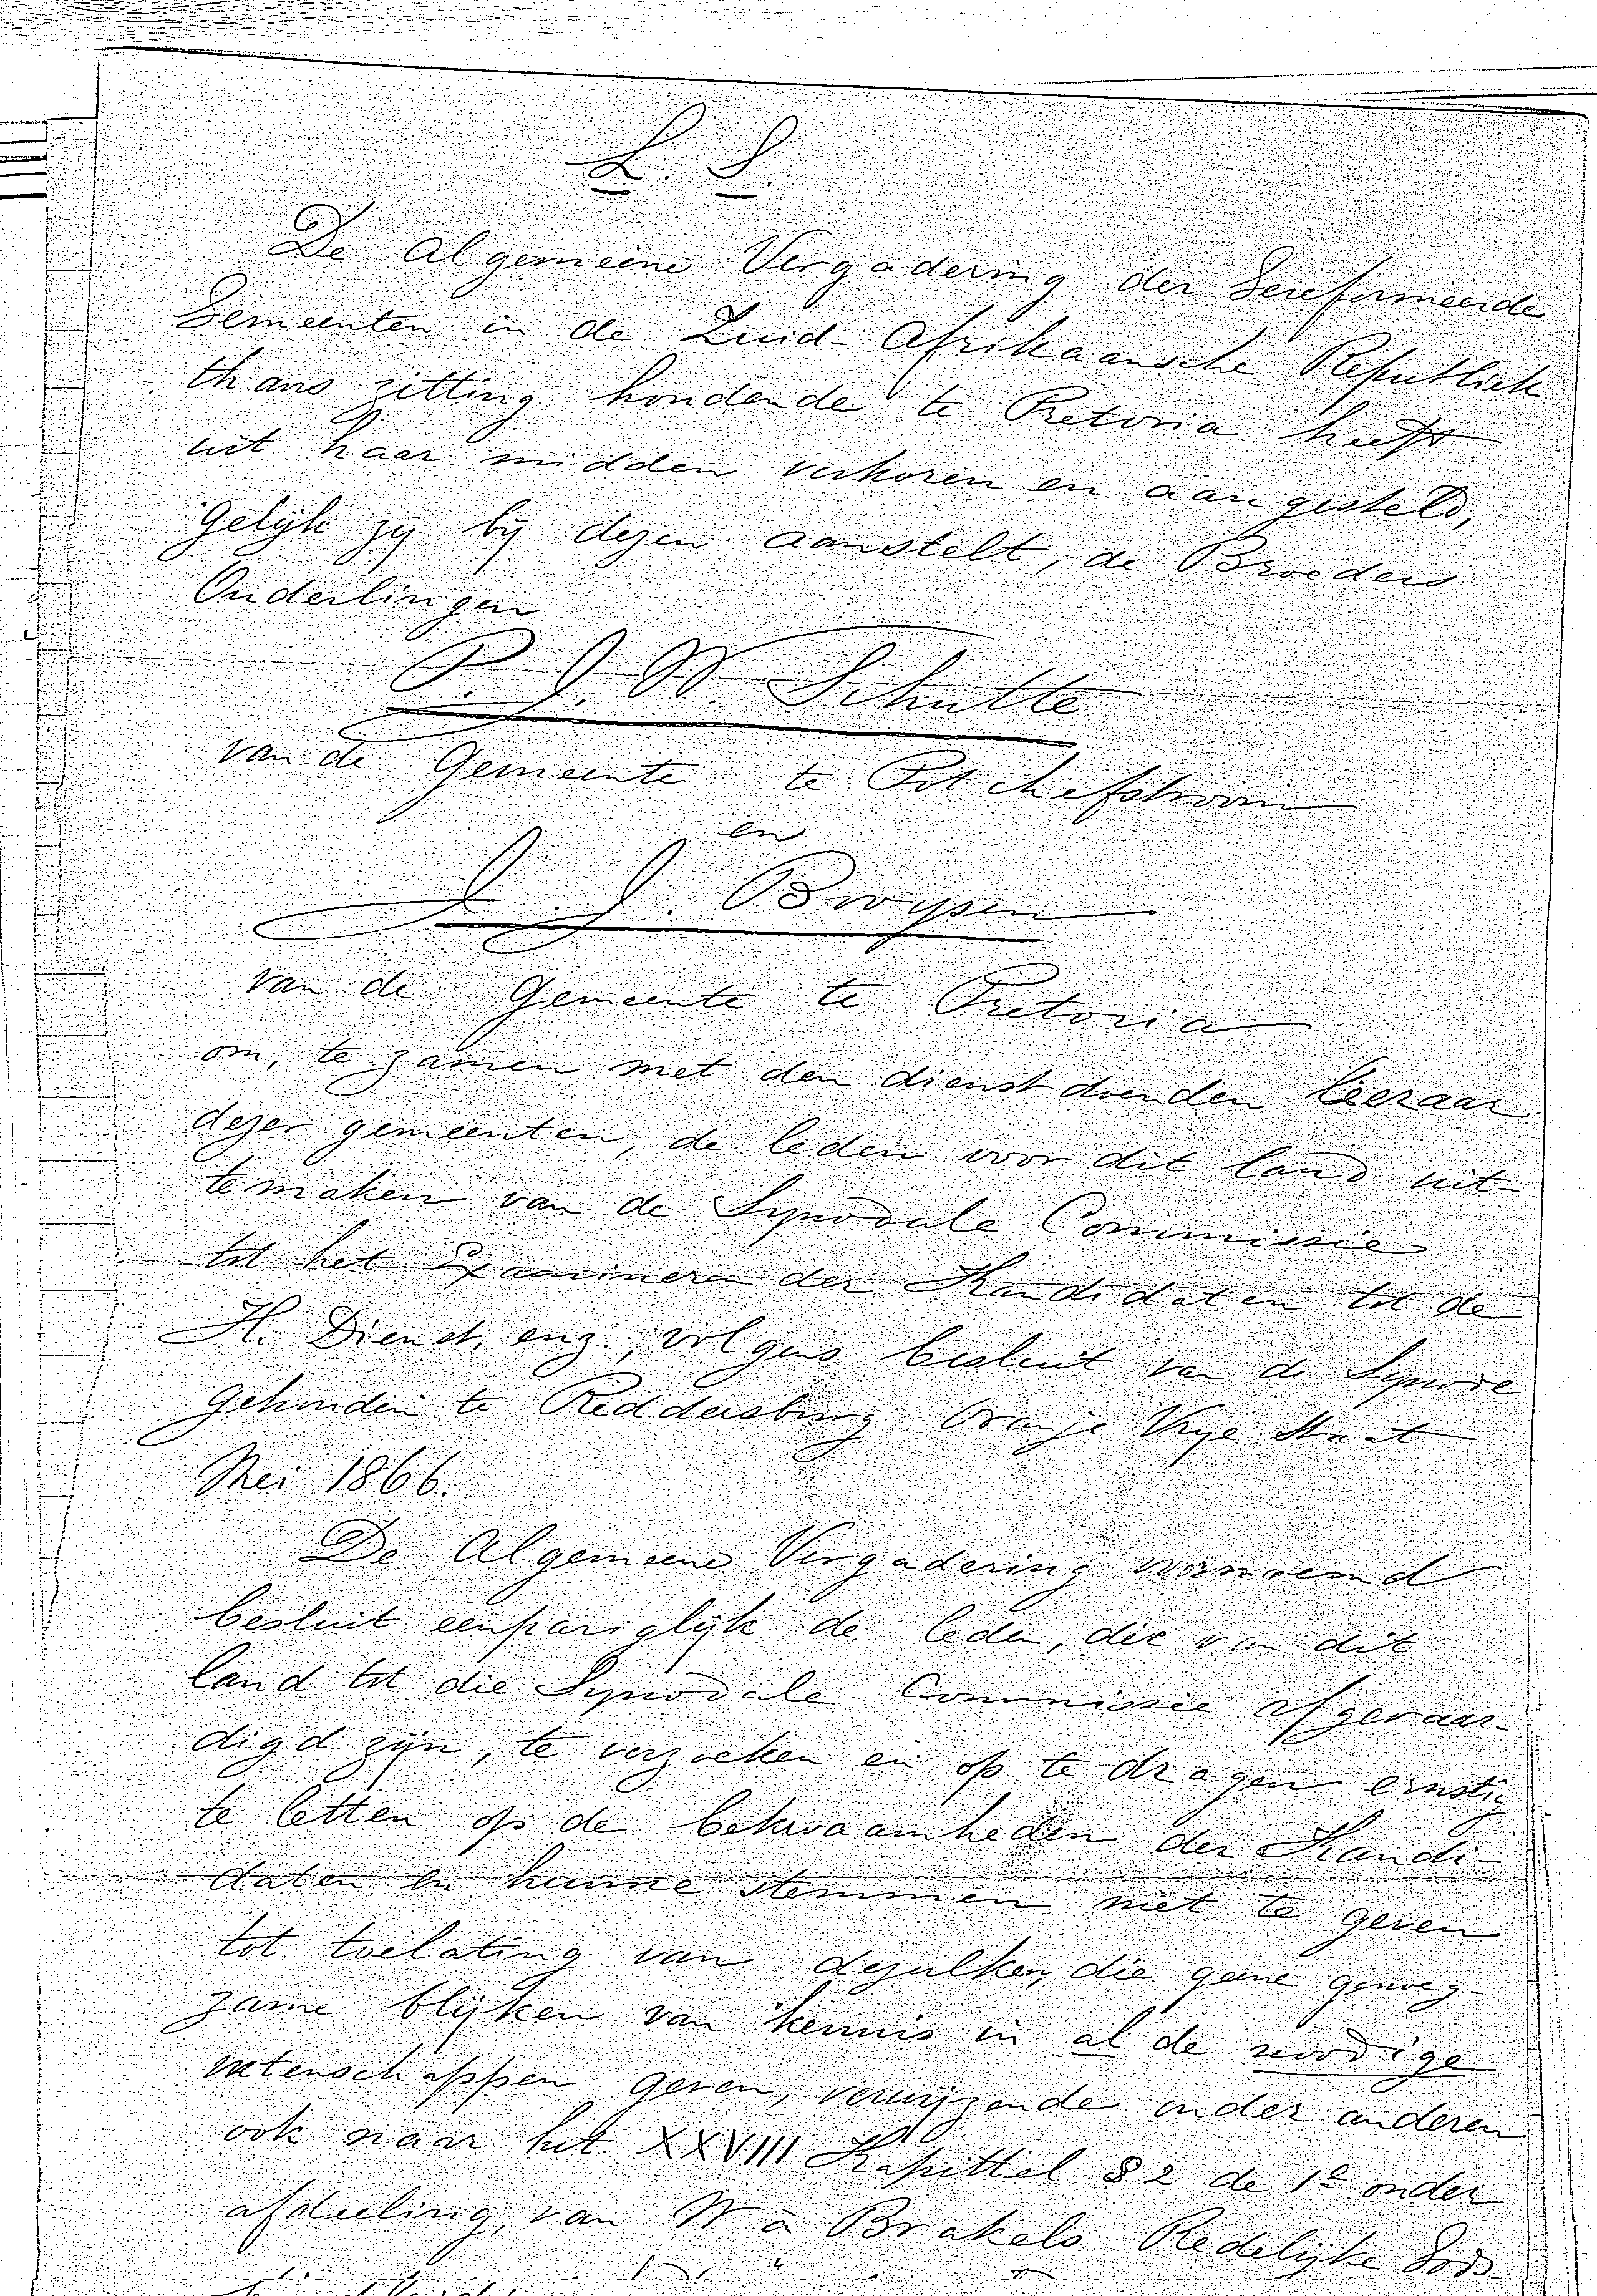 L. S.
De Algemeene Vergadering der Gereformeerde
Gemeenten in de Zuid-Afrikaansche Republiek
thans zitting houdende te Pretoria heeft
uit haar midden verkoren en aangesteld,
gelijk zij bij dezen aanstelt, de Broeders
Ouderlingen
P. J. W. Schutte
van de Gemeente te Potchefstroom
en
J. J. Bruysen
van de Gemeente te Pretoria
om, te zamen met den dienstdoenden leeraar
dezer gemeenten, de leden voor dit land uit-
temaken van de Synodale Commissie
tot het Examineren der Kandidaten tot de
H. Dienst, enz., volgens besluit van de Synode
gehouden te Reddersburg Oranje Vrye Staat
Mei 1866.
De Algemeene Vergadering voornoemd
besluit eenpariglijk de leden, die van dit
land tot die Synodale Commissie afgevaar-
digd zijn, te verzoeken en op te dragen ernstig
te letten op de bekwaamheden der Kandi-
daten en hunne stemmen niet te geven
tot toelating van dezulken, die geene genoeg-
zame blijken van kennis in al de noodige
wetenschappen geven, verwijzende onder anderen
ook naar het XXVIII Kapittel § 2 de 1e onder
afdeeling, van W à Brakels Redelijke Gods